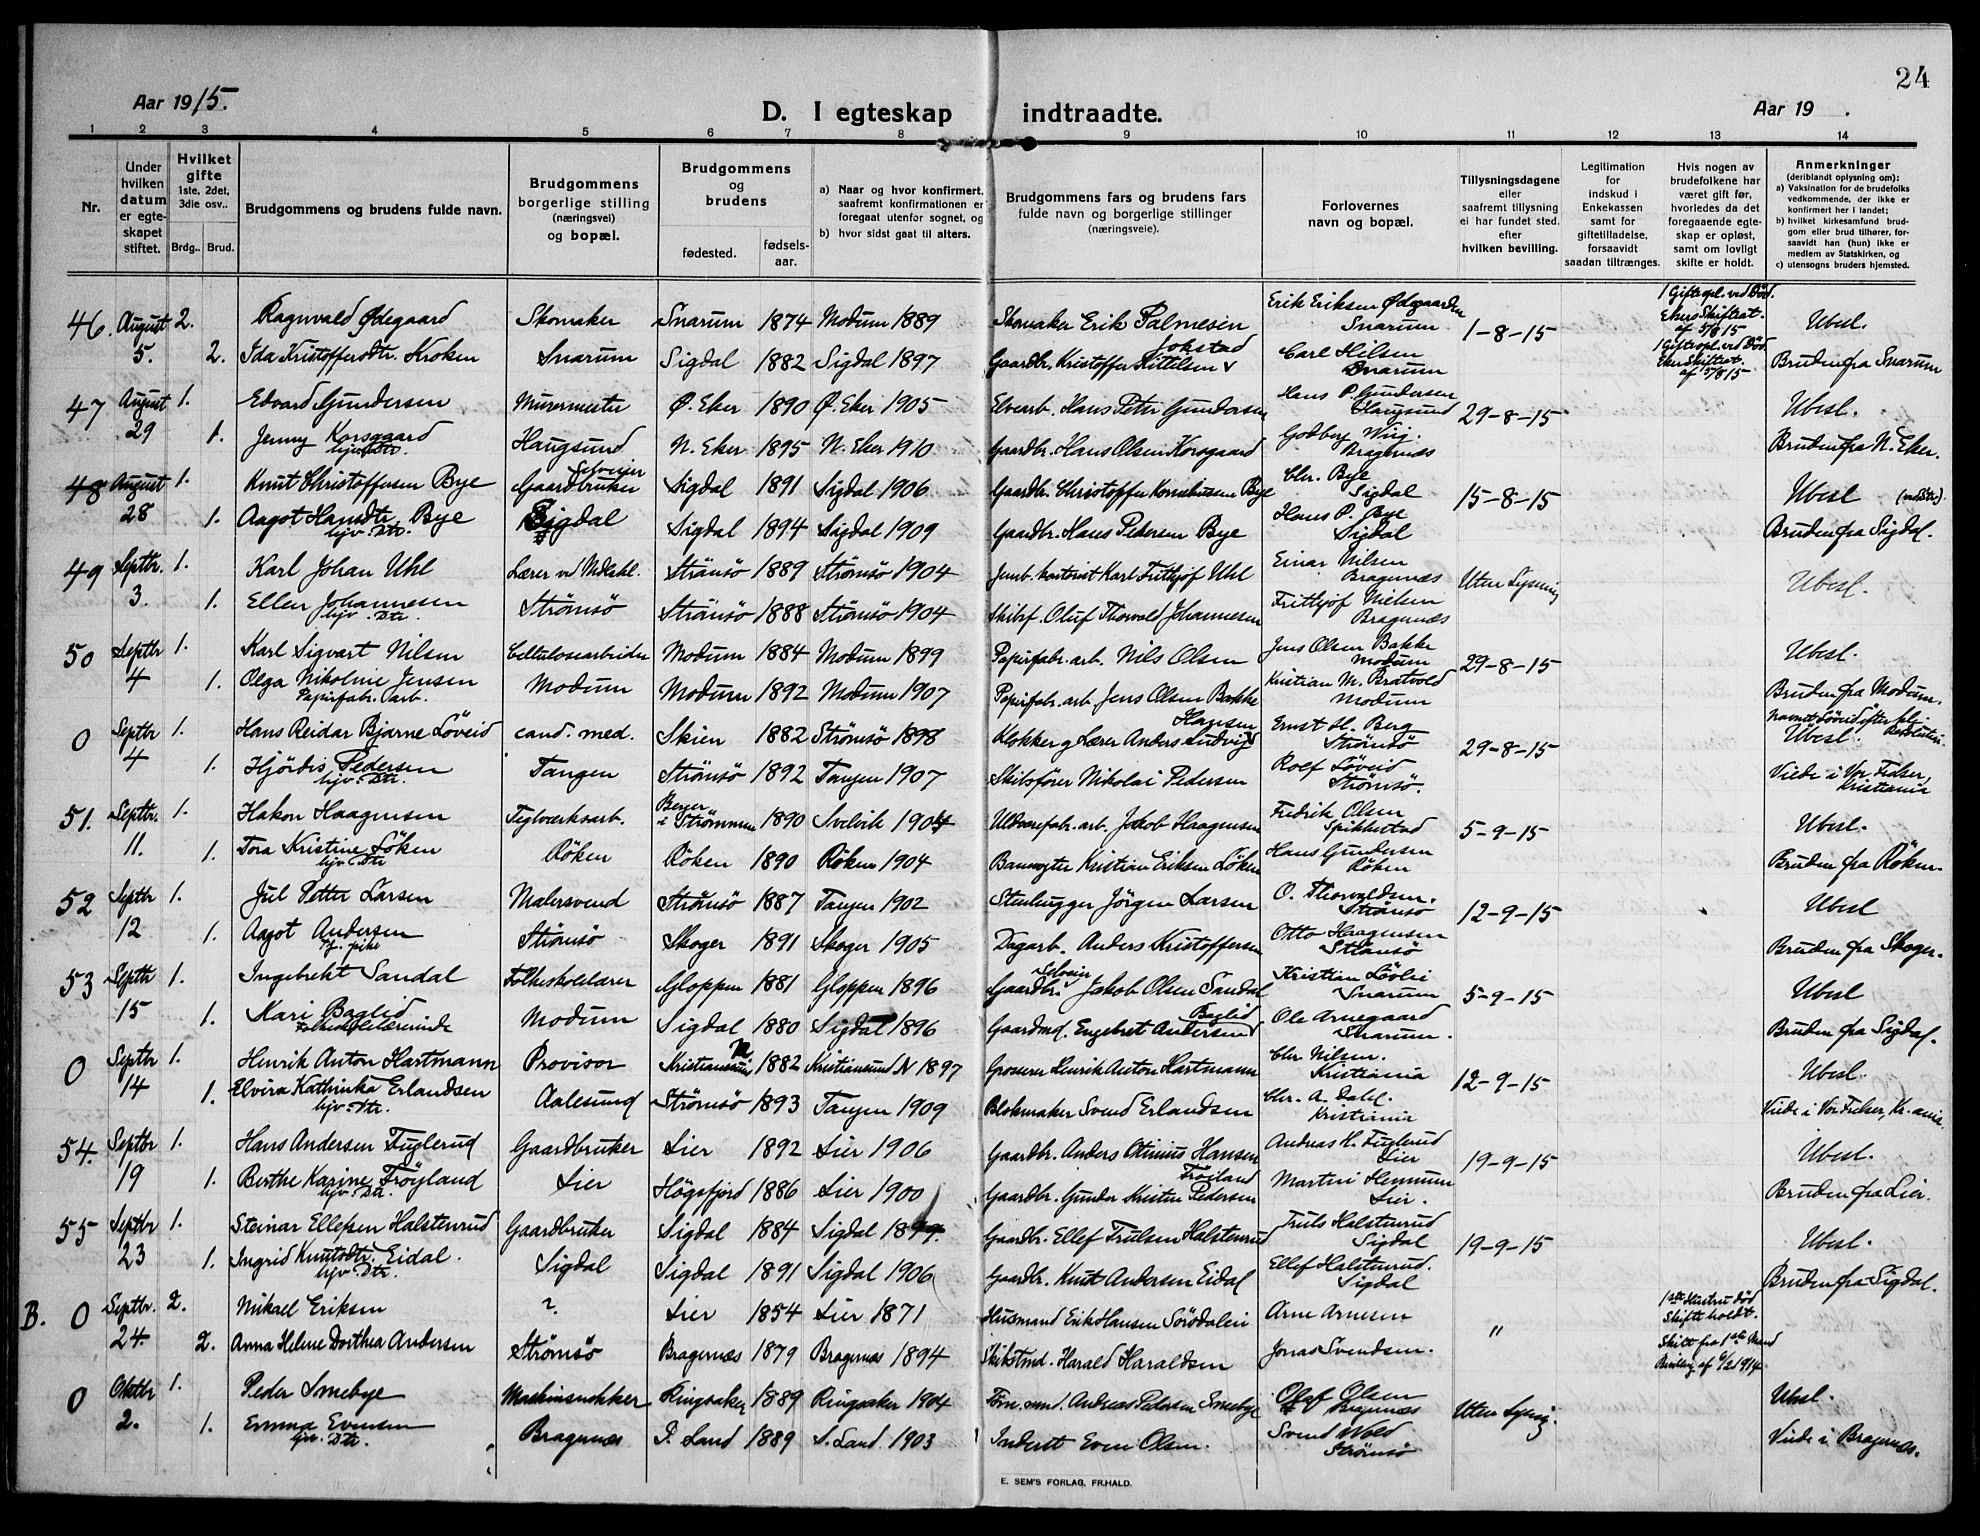 24
Aar 1915.
D. I egteskap indtraadte.
Aar 19 .
1 2 3 4 5 6 7 8 9 10 11 12 13 14
Nr.
Under hvilken datum er egteskapet stiftet.
Hvilket gifte 1ste, 2det, 3die osv..
Brdg.. Brud.
Brudgommens og brudens fulde navn.
Brudgommens borgerlige stilling (næringsvei) og bopæl.
Brudgommens og brudens
fødested. fødselsaar.
a) Naar og hvor konfirmert, saafremt konfirmationen er foregaat utenfor sognet, og
b) hvor sidst gaat til alters.
Brudgommens fars og brudens fars fulde navn og borgerlige stillinger (næringsveie).
Forlovernes navn og bopæl.
Tillysningsdagene eller saafremt tillysning ei har fundet sted. efter hvilken bevilling.
Legitimation for indskud i Enkekassen samt for giftetilladelse, forsaavidt saadan tiltrænges.
Hvis nogen av brudefolkene har været gift før, hvorledes da det foregaaende egteskap er opløst, samt om lovligt skifte er holdt.
Anmerkninger (deriblandt oplysning om): a) Vaksination for de brudefolks vedkommende, der ikke er konfirmert her i landet; b) hvilket kirkesamfund brudgom eller brud tilhører, forsaavidt han (hun) ikke er medlem av Statskirken, og c) utensogns bruders hjemsted.
46. August 2. Ragnvald Ødegaard Skomaker Snarum 1874 Modum 1889 Skomaker Erik Palmesen Erik Eriksen Ødegaarden Snarum 1-8-15 1 Gifte opl. ved Død. Ekers Skifteret. af 5/8 15 Ubesl.
5. 2. Ida Kristoffersdtr. Kroken Snarum Sigdal 1882 Sigdal 1897 Gaardbr. Kristoffer Kittelsen Jokstad Carl Hilsen Snarum 1 Gifte opl. ved Død Eker Skifteret. af 5/8 15 Bruden fra Snarum
47 August 1. Edvard Gundersen Murermester Ø. Eker 1890 Ø. Eker 1905 Elvearb. Hans Peter Gundersen Hans P. Gundersen Haugsund 29-8-15 Ubesl.
29 1. Jenny Korsgaard hjv. Dtr. Haugsund N. Eker 1895 N. Eker 1910 Gaardbr. Hans Olsen Korsgaard Godberg Wiig. Bragernæs Bruden fra N. Eker.
48 August 1. Knut Christoffersen Bye Gaardbruker Selveier Sigdal 1891 Sigdal 1906 Gaardbr. Christoffer Korneliusen Bye Chr. Bye Sigdal 15-8-15 Ubesl
28 1. Aagot Hansdtr. Bye hjv. Dtr. Sigdal Sigdal 1894 Sigdal 1909 Gaardbr. Hans Pedersen Bye Hans P. Bye Sigdal Bruden fra Sigdal.
49 Septbr. 1. Karl Johan Uhl Lærer vd Mdlskl. Strömsö 1889 Strömsö 1904 Jernb. kontorist Karl Frithjof Uhl Einar Nilsen Bragernæs Uten Lysning Ubesl.
3. 1. Ellen Johannesen hjv. Dtr. Strömsö Strömsö 1888 Strömsö 1904 Skibsf. Oluf Thorvald Johannesen Frithjof Nielsen Bragernæs
50 Septbr 1. Karl Sigvart Nilsen Cellulosearbeider Modum 1884 Modum 1899 Papirfabr. arb. Nils Olsen Jens Olsen Bakke Modum 29-8-15 Ubesl.
4 1. Olga Nikoline Jensen Papirfabr. arb. Modum Modum 1892 Modum 1907 Papirfabr. arb Jens Olsen Bakke Kristian M. Bratvold Modum Bruden fra Modum.
0 Septbr 1. Hans Reidar Bjarne Löveid cand. med. Skien 1882 Strömsö 1898 Klokker og Lærer Anders Ludvig Hansen Ernst H. Berg Strömsö 29-8-15 Navnet Löveid efter kgl. Resolution. Ubesl.
4 1. Hjördis Pedersen hjv. Dtr. Tangen Strömsö 1892 Tangen 1907 Skibsfører Nikolai Pedersen Rolf Löveid Strömsö. Viede i Vor Frelser, Kristiania
51. Septbr. 1. Hakon Haagensen Teglverksarb. Berger i Strømmen 1890 Svelvik 1904 Uldvarefabr. arb. Jakob Haagensen Fredrik Olsen Spikkestad 5-9-15 Ubesl.
11. 1. Tora Kristine Löken hjv. Dtr Röken Röken 1890 Röken 1904 Banevogter Kristian Eriksen Löken Hans Gundersen Röken Bruden fra Röken.
52 Septbr 1. Jul Petter Larsen Malersvend Strömsö 1887 Tangen 1902 Stenhugger Jörgen Larsen O. Thorvaldsen. Strömsö 12-9-15 Ubesl
12 1. Aagot Andersen Strömsö Skoger 1891 Skoger 1905 Dagarb. Anders Kristoffersen Otto Haagensen Strömsö Bruden fra Skoger.
53 Septb 1. Ingebrekt Sandal Folkeskolelærer Gloppen 1881 Gloppen 1896 Gaardbr. Selveier Jakob Olsen Sandal Kristian Lövlie Snarum 5-9-15 Ubesl
15 1. Kari Baglid Folkeskolelærerinde Modum Sigdal 1880 Sigdal 1896 Gaardmd. Engebret Andersen Baglid Ole Arnegaard Snarum. Bruden fra Sigdal.
0 Septbr 1. Henrik Anton Hartmann Provisor Kristiansund N 1882 Kristiansund N 1897 Grosserer Henrik Anton Hartmann Chr Nilsen. Kristiania 12-9-15 Ubesl.
14 1. Elvira Kathinka Erlandsen hjv. Dtr. Aalesund Strömsö 1893 Tangen 1909 Blokmaker Svend Erlandsen Chr. A. Dahl. Kristiania Viede i Vor Frelser, Kr.ania.
54. Septbr 1. Hans Andersen Fuglerud Gaardbruker Lier 1892 Lier 1906 Gaardbr. Anders Otinius Hansen Andreas H. Fuglerud Lier 19-9-15 Ubesl.
19 1. Berthe Karine Fröyland hjv. Dtr. Lier Högsfjord 1886 Lier 1900 Gaardbr. Gunder Kristen Pedersen Fröiland Martin Hennum Lier. Bruden fra Lier.
55 Septbr 1. Steinar Ellefsen Halstenrud Gaardbruker Sigdal 1884 Sigdal 1899. Gaardbr. Ellef Trulsen Halstenrud Truls Halstenrud Sigdal 19-9-15 Ubesl.
23 1. Ingrid Knutsdtr. Eidal. hjv. Dtr. Sigdal Sigdal 1891 Sigdal 1906 Gaardbr. Knut Andersen Eidal Ellef Halstenrud. Sigdal Bruden fra Sigdal.
B. 0 Septbr. 2. Mikael Eriksen ? Lier 1854 Lier 1871 Husmand Erik Hansen Sörsdalen Arne Arnesen " 1ste Hustru død Skifte holdt.
24. 2. Anna Helene Dorthea Andersen Strömsö Bragernæs 1879 Bragernæs 1894 Skibstmd. Harald Haraldsen Jonas Svendsen. Skilt fra 1ste Mand Bevilling af 6/2 1914.
0 Oktbr 1. Peder Smebye Maskinsnekker Ringsaker 1889 Ringsaker 1904 Andreas Pedersen Smebye Olaf Olsen Bragernæs Uten Lysnig. Ubesl.
2. 1. Emma Evensen hjv. Dtr. Bragernæs S. Land 1889 S. Land. 1903 Inderst Even Olsen. Svend Wold Strömsö Viede i Bragernæs.
E. SEM'S FORLAG, FR.HALD.